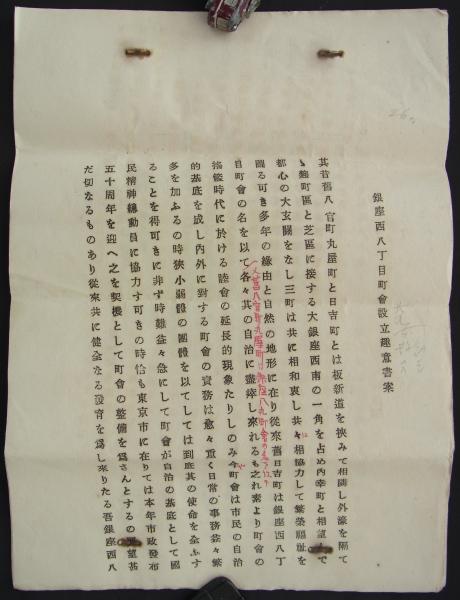 銀座西八丁目町會設立趣意書案
其昔舊八官町丸屋町と日吉町とは板新道を挾みて相隣し外濠を隔て
麴町區と芝區に接する大銀座西南の一角を占め内幸町と相望
都心の大玄關をなし三町は共に相和衷し共々相協力して繁榮福祉を
圖る可き多年の緣由と自然の地形に在り從來舊日吉町は銀座西八丁
目町會の名を以て各々其の自治に盡瘁し來れるも之れ素より町會の
搖籃時代に於ける睦會の延長的現象たりしのみ今町會は市民の自治
的基底を成し内外に對する町會の責務は愈々重く日常の事務益々繁
多を加ふるの時狹小弱體の團體を以てしては到底其の使命を全ふす
ることを得可きに非ず時難益々急にして町會が自治の基底として國
民精神總動員に協力す可きの時恰も東京市に在りては本年市政發布
五十周年を迎へ之を契機として町會の整備を爲さんとするの要望甚
だ切なるものあり從來共に健全なる發育を爲し來りたる吾銀座西八